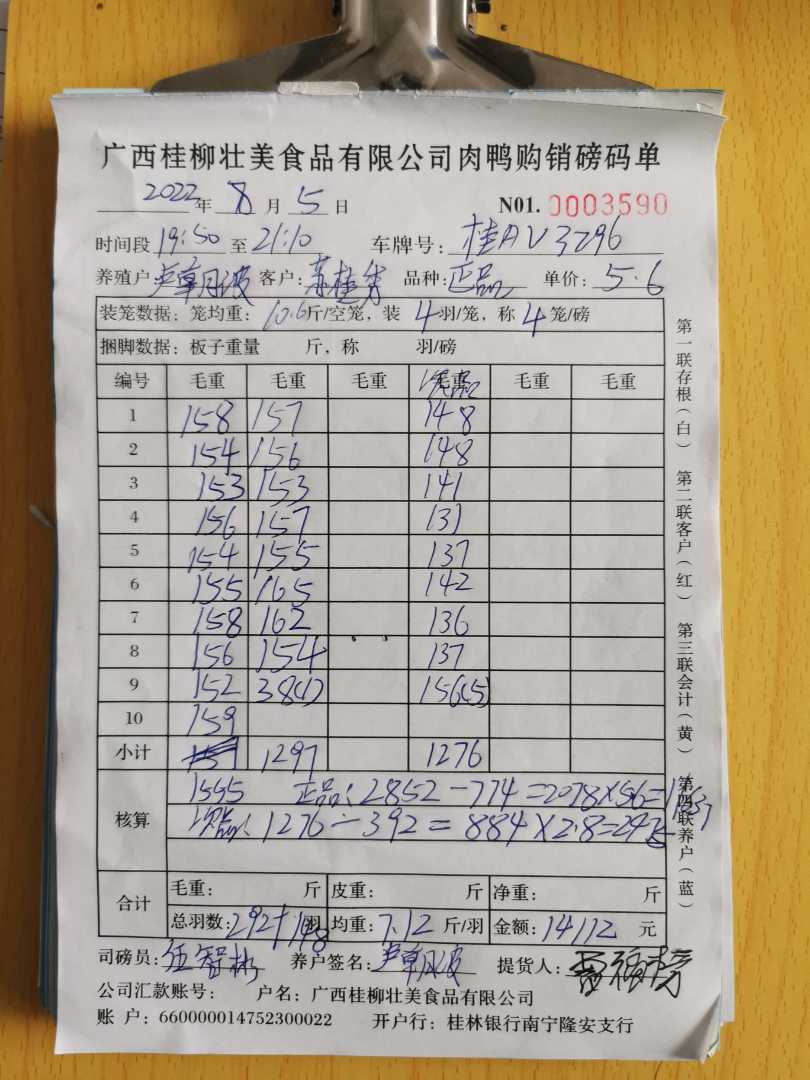 广西桂柳壮美食品有限公司肉鸭购销磅码单
2022年 8月 5日 N01. 0003590
时间段 19:50 至 21:10 车牌号: 桂AV3296
养殖户 客户: 品种: 正品 单价: 5.6
装笼数据: 笼均重: 10.6斤/空笼, 装 4羽/笼, 称 4笼/磅
捆脚数据: 板子重量 斤, 称 羽/磅
编号 毛重 毛重 毛重 毛重 毛重 毛重
1 158 157 148
2 154 156 148
3 153 153 141
4 156 157 131
5 154 155 137
6 155 165 142
7 158 162 136
8 156 154 137
9 152 38(1) 156(5)
10 159
小计 1297 1276
核算 1555 正品: 2852-774=2078×5.6=11637
次品: 1276-392=884×2.8=2475
合计 毛重: 斤 皮重: 斤 净重: 斤
总羽数: 292+148羽 均重: 7.12斤/羽 金额: 14112元
司磅员: 伍智彬 养户签名: 提货人:
公司汇款账号: 户名: 广西桂柳壮美食品有限公司
账 户: 660000014752300022 开户行: 桂林银行南宁隆安支行
第一联存根(白) 第二联客户(红) 第三联会计(黄) 第四联养户(蓝)